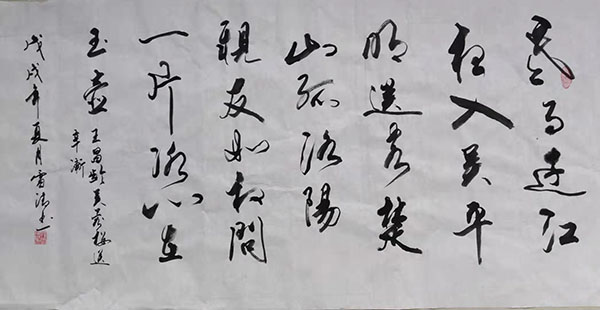 寒雨连江
夜入吴平
明送客楚
山孤洛陽
親友如相問
一片冰心在
玉壶 王昌龄芙蓉楼送
辛渐
戊戌年夏月